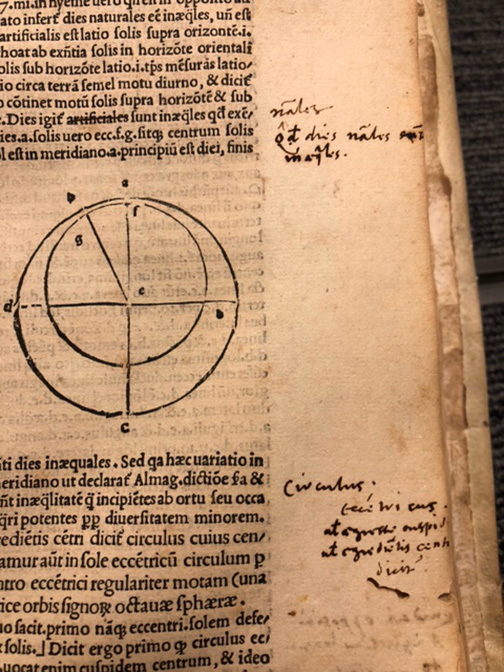 7.mi.in hyeme uero qñ est in opposito au
ato infert dies naturales eẽ inæqles, uñ est
artificialis est latio solis supra orizonté.i.
choat ab exñtia solis in horizõte orientali
olis sub horizõte latio.i.tps mẽsurãs latio/
io circa terrã semel motu diurno, & dicit
o cõtinet motũ solis supra horizõtẽ & sub
. Dies igit artificiales sunt inæqles qd exẽ/
ies.a.solis uero ecc.f.g.sitq; centrum solis
ol est in meridiano.a.principiũ est diei, finis
nãles
qd dies nãles
inæqles.
b a
f
g
e
d b
c
iti dies inæquales. Sed qa hæc uariatio in
eridiano ut declarat Almag.dictiõe
ñt inæqlitatẽ q incipiẽtes ab ortu seu occa
qri potentes pp diuersitatem minorem.
ediẽtis cẽtri dicit circulus cuius cen/
amur aũt in sole eccẽtricũ circulum p
ntro eccẽtrici regulariter motam (una
ice orbis signor octauæ sphæræ.
uo facit.primo nãq; eccentri.solem defe/
solis.] Dicit ergo primo q circulus ec/
uocat enim cuspidem centrum, & ideo
Circulus.
eccẽtricus.
dicit